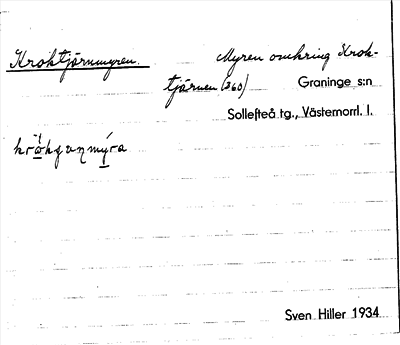 Kroktjärnmyren. Myren omkring Krok-
tjärnen (360) Graninge s:n
Sollefteå tg., Västernorrl. l.
Sven Hiller 1934